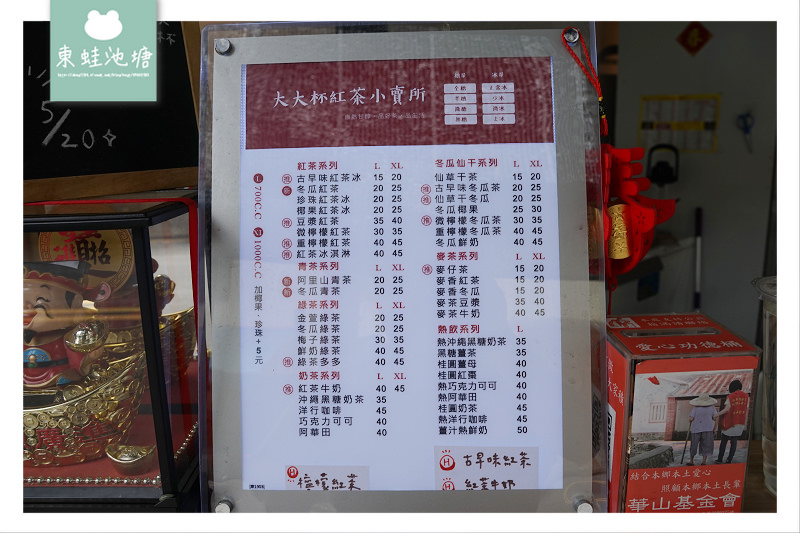 東蛙池塘
5/20
大大杯紅茶小賣所
全糖 正常冰
半糖 少冰
微糖 微冰
無糖 去冰
L 700C.C
XL 1000C.C 加椰果·珍珠+5元
紅茶系列 L XL
推 古早味紅茶冰 15 20
新 冬瓜紅茶 20 25
珍珠紅茶冰 20 25
椰果紅茶冰 20 25
推 豆漿紅茶 35 40
微檸檬紅茶 30 35
推 重檸檬紅茶 40 45
推 紅茶冰淇淋 40 45
青茶系列 L XL
新 阿里山青茶 20 25
新 冬瓜青茶 20 25
綠茶系列 L XL
金萱綠茶 20 25
冬瓜綠茶 20 25
梅子綠茶 30 35
鮮奶綠茶 40 45
推 綠茶多多 40 45
奶茶系列 L XL
推 紅茶牛奶 40 45
沖繩黑糖奶茶 35
洋行咖啡 45
巧克力可可 40
阿華田 40
冬瓜仙干系列 L XL
仙草干茶 15 20
推 古早味冬瓜茶 20 25
推 仙草干冬瓜 20 25
冬瓜椰果 25 30
推 微檸檬冬瓜茶 30 35
重檸檬冬瓜茶 40 45
冬瓜鮮奶 40 45
麥茶系列 L XL
推 麥仔茶 15 20
麥香紅茶 15 20
麥香冬瓜 15 20
麥茶豆漿 35 40
麥茶牛奶 40 45
熱飲系列 L
熱沖繩黑糖奶茶 35
黑糖薑茶 35
桂圓薑母 40
桂圓紅棗 40
熱巧克力可可 40
熱阿華田 40
桂圓奶茶 45
熱洋行咖啡 45
薑汁熱鮮奶 50
H 檸檬紅茶
H 古早味紅茶
H 紅茶牛奶
愛心功德桶
結合本鄉本土愛心
照顧本鄉本土長輩
華山基金會